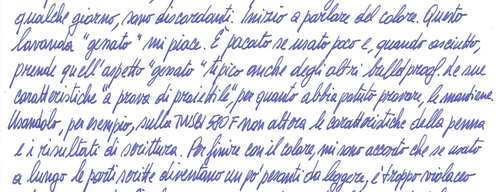 qualche giorno, sono discordanti. Inizio a parlare del colore. Questo
lavanda "gessato" mi piace. È pacato se usato poco e, quando asciutto,
prende quell'aspetto "gessato" tipico anche degli altri bulletproof. Le sue
caratteristiche "a prova di proiettile", per quanto abbia potuto provare, le mantiene.
Usandolo, per esempio, sulla TWSBI 580 F non altera le caratteristiche della penna
e i risultati di scrittura. Per finire con il colore, mi sono accorto che se usato
a lungo le parti scritte diventano un po' pesanti da leggere, è troppo violaceo